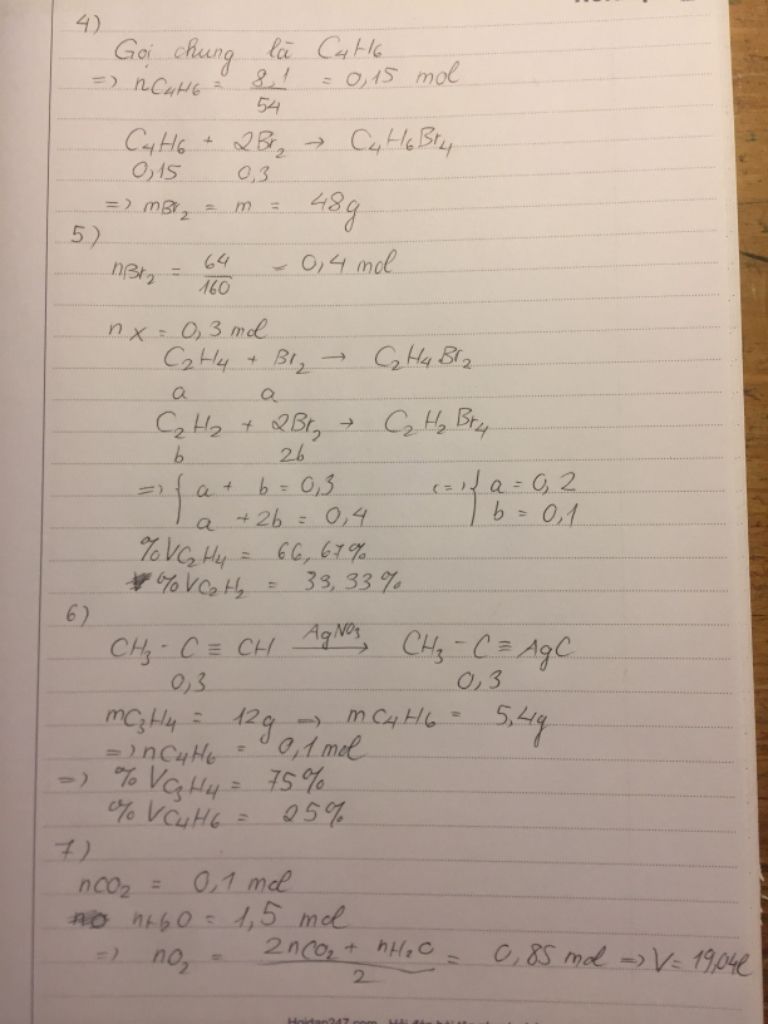 4)
Gọi chung là C4H6
=> nC4H6 = 8,1/54 = 0,15 mol
C4H6 + 2Br2 → C4H6Br4
0,15 0,3
=> mBr2 = m = 48g
5)
nBr2 = 64/160 = 0,4 mol
nX = 0,3 mol
C2H4 + Br2 → C2H4Br2
a a
C2H2 + 2Br2 → C2H2Br4
b 2b
=> { a + b = 0,3 <=> { a = 0,2
a + 2b = 0,4 b = 0,1
%VC2H4 = 66,67%
%VC2H2 = 33,33%
6)
CH3 - C ≡ CH AgNO3 → CH3 - C ≡ AgC
0,3 0,3
mC3H4 = 12g => mC4H6 = 5,4g
=> nC4H6 = 0,1 mol
=> %VC3H4 = 75%
%VC4H6 = 25%
7)
nCO2 = 0,1 mol
nH2O = 1,5 mol
=> nO2 = 2nCO2 + nH2O/2 = 0,85 mol => V = 19,04l